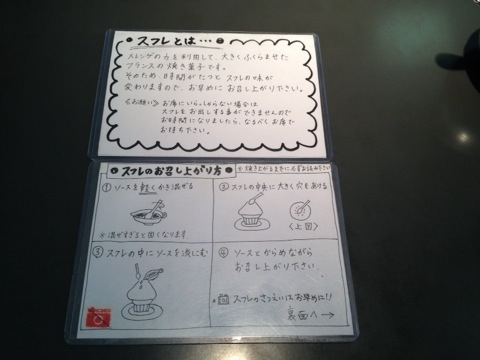 スフレとは…
メレンゲの力を利用して、大きくふくらませた
フランスの焼き菓子です。
そのため、時間がたつとスフレの味が
変わりますので、お早めにお召し上がり下さい。
《お願い》お席にいらっしゃらない場合は
スフレをお出しする事ができませんので
お時間になりましたら、なるべくお席で
お待ち下さい。
スフレのお召し上がり方
※焼き上がるまでに必ずお読み下さい
① ソースを軽くかき混ぜる
※混ぜすぎると固くなります
② スフレの中央に大きく穴をあける
〈上図〉
③ スフレの中にソースを流しこむ
④ ソースとからめながら
お召し上がり下さい。
スフレのさつえいはお早めに!!
裏面へ→